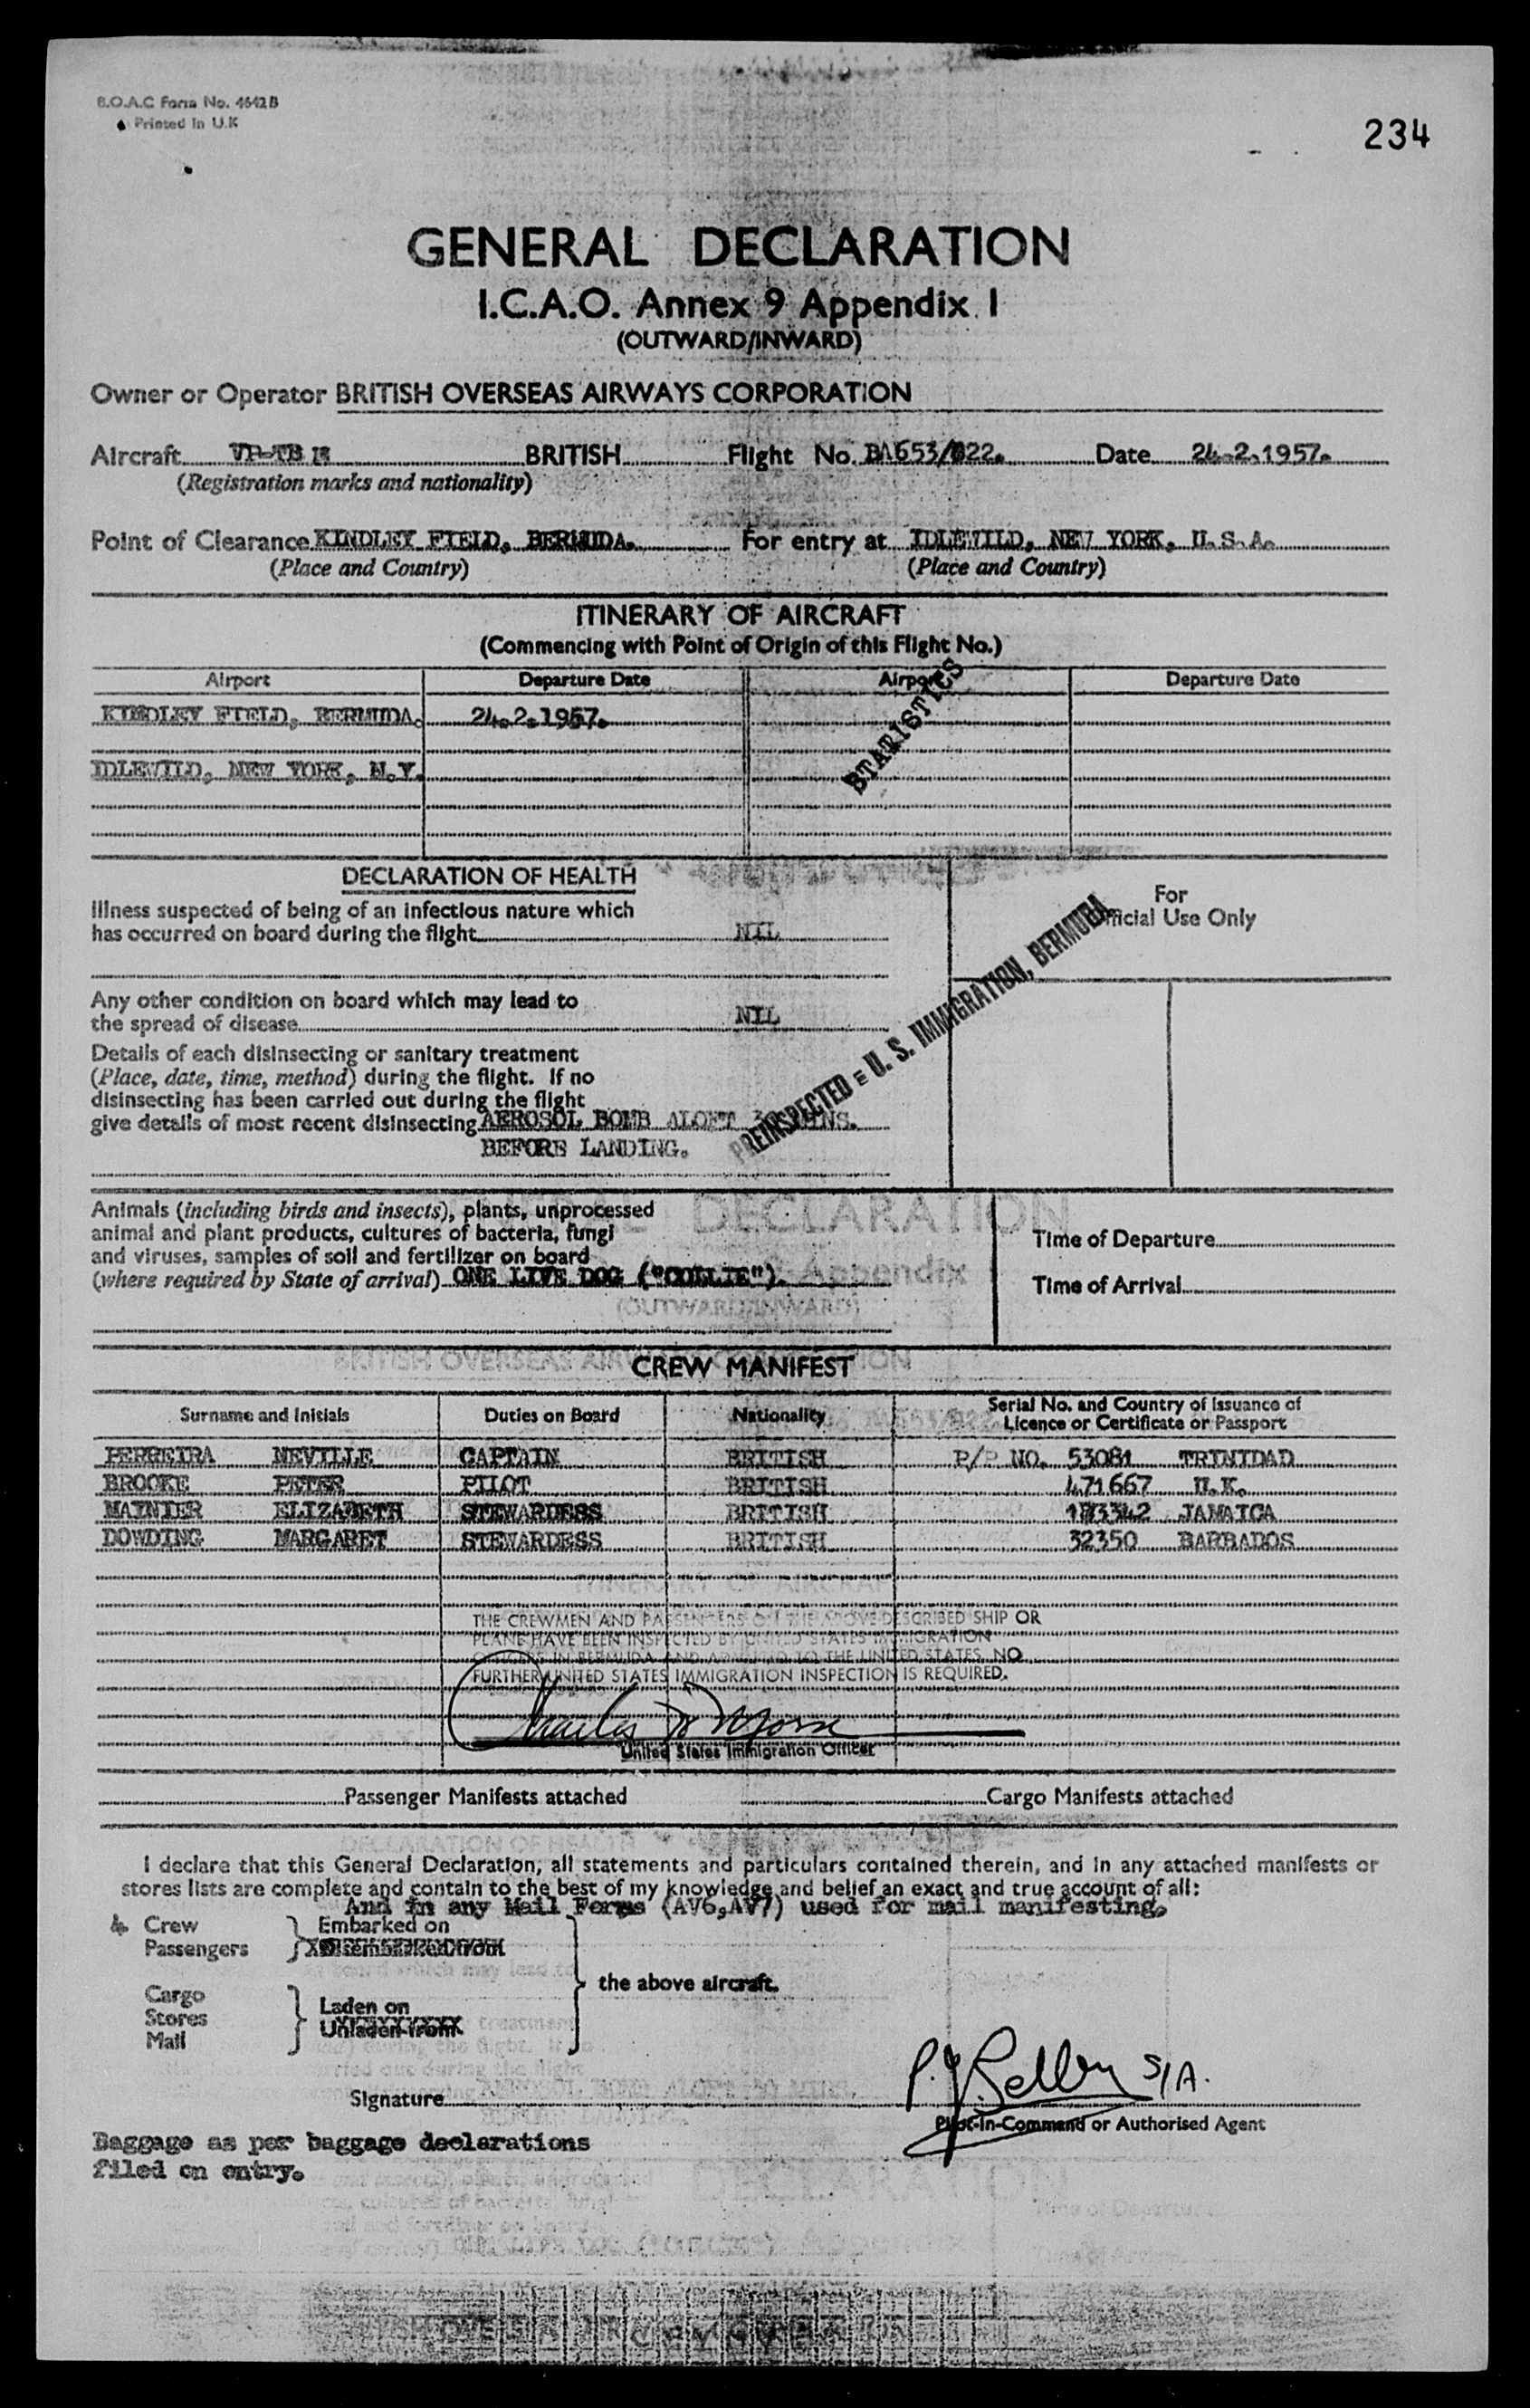 B.O.A.C Form No. 4642B
Printed in U.K
234
GENERAL DECLARATION
I.C.A.O. Annex 9 Appendix I
(OUTWARD/INWARD)
Owner or Operator BRITISH OVERSEAS AIRWAYS CORPORATION
Aircraft BRITISH Flight No. BA653/022. Date 24.2.1957.
(Registration marks and nationality)
Point of Clearance KINDLEY FIELD, BERMUDA. For entry at IDLEWILD, NEW YORK, U.S.A.
(Place and Country) (Place and Country)
ITINERARY OF AIRCRAFT
(Commencing with Point of Origin of this Flight No.)
Airport Departure Date Airport Departure Date
STATISTICS
KINDLEY FIELD, BERMUDA. 24.2.1957.
IDLEWILD, NEW YORK, N.Y.
DECLARATION OF HEALTH
For
Official Use Only
Illness suspected of being of an infectious nature which
has occurred on board during the flight NIL
Any other condition on board which may lead to
the spread of disease NIL
PREINSPECTED = U. S. IMMIGRATION, BERMUDA
Details of each disinsecting or sanitary treatment
(Place, date, time, method) during the flight. If no
disinsecting has been carried out during the flight
give details of most recent disinsecting AEROSOL BOMB ALOFT 30 MINS.
BEFORE LANDING.
Animals (including birds and insects), plants, unprocessed
animal and plant products, cultures of bacteria, fungi
and viruses, samples of soil and fertilizer on board
(where required by State of arrival) ONE LIVE DOG ("COLLIE").
Time of Departure
Time of Arrival
CREW MANIFEST
Surname and Initials Duties on Board Nationality Serial No. and Country of Issuance of
Licence or Certificate or Passport
FERREIRA NEVILLE CAPTAIN BRITISH P/P NO. 53081 TRINIDAD
BROOKE PETER PILOT BRITISH 471667 U.K.
MAYNIER ELIZABETH STEWARDESS BRITISH JAMAICA
DOWDING MARGARET STEWARDESS BRITISH 32350 BARBADOS
THE CREWMEN AND PASSENGERS ON THE ABOVE DESCRIBED SHIP OR
PLANE HAVE BEEN INSPECTED BY UNITED STATES IMMIGRATION
OFFICERS IN BERMUDA AND ADMITTED TO THE UNITED STATES. NO
FURTHER UNITED STATES IMMIGRATION INSPECTION IS REQUIRED.
Charles
United States Immigration Officer
Passenger Manifests attached Cargo Manifests attached
I declare that this General Declaration, all statements and particulars contained therein, and in any attached manifests or
stores lists are complete and contain to the best of my knowledge and belief an exact and true account of all:
And in any Mail Forms (AV6,AV7) used for mail manifesting.
4 Crew Embarked on
Passengers Disembarked from
the above aircraft.
Cargo
Stores Laden on
Mail Unladen from
Signature S/A.
Pilot-in-Command or Authorised Agent
Baggage as per baggage declarations
filed on entry.